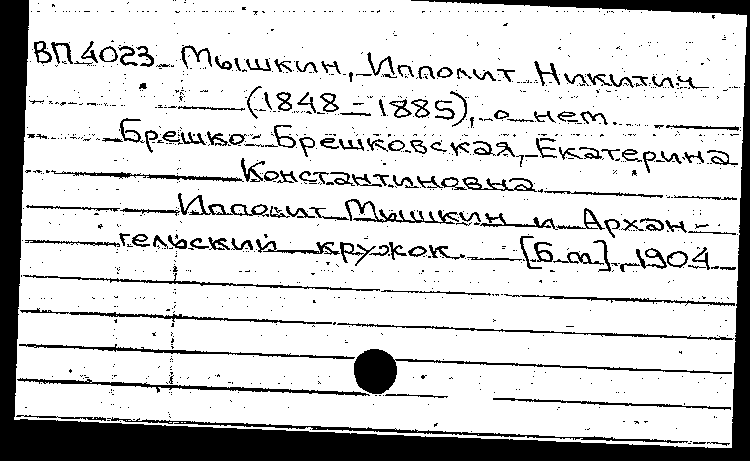 ВП 4023 Мышкин, Ипполит Никитич
(1848-1885), о нем.
Брешко-Брешковская, Екатерина
Константиновна
Ипполит Мышкин и Архан-
гельский кружок. [Б.m], 1904